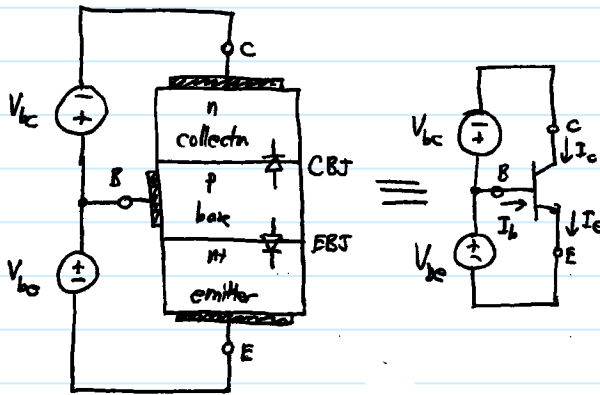 C
n
collectn
Vbc
- +
CBJ
B
p
base
EBJ
n+
Vbe
+ -
emitter
E
≡
Vbc
- +
C
Ic
B
Ib
Ie
Vbe
+ -
E